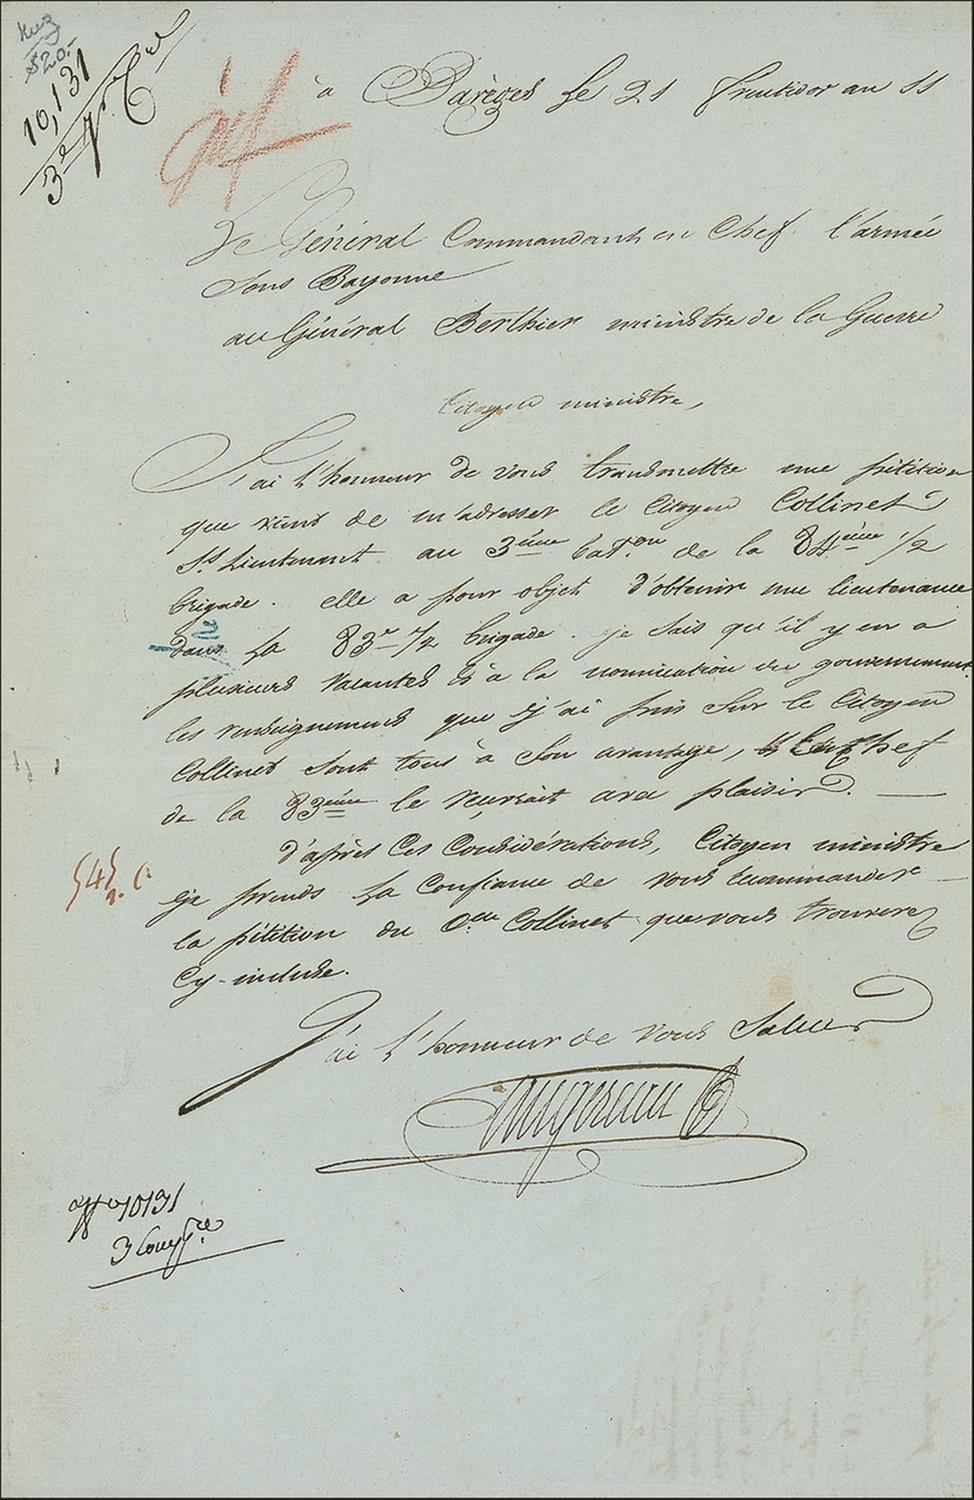 $20-
10,131
à Barèges le 21 fructidor an 11
Le Général Commandant en Chef l'armée
Sous Bayonne
au Général Berthier ministre de la Guerre
Citoyen ministre,
J'ai l'honneur de vous transmettre une pétition
que vient de m'adresser le Citoyen Collinet
S.s Lieutenant au 3ème Bat.on de la 84ème 1/2
brigade. elle a pour objet d'obtenir une lieutenance
dans la 83e 1/2 brigade. je sais qu'il y en a
plusieurs vacantes et à la nomination du gouvernement.
les renseignemens que j'ai pris sur le Citoyen
Collinet sont tous à son avantage, Chef
de la 83ème le verrait avec plaisir. —
d'après ces Considérations, Citoyen ministre
je prends la Confiance de vous recommander
la pétition du Cen Collinet que vous trouverez
Cy-incluse.
J'ai l'honneur de vous Saluer
Augereau
10131